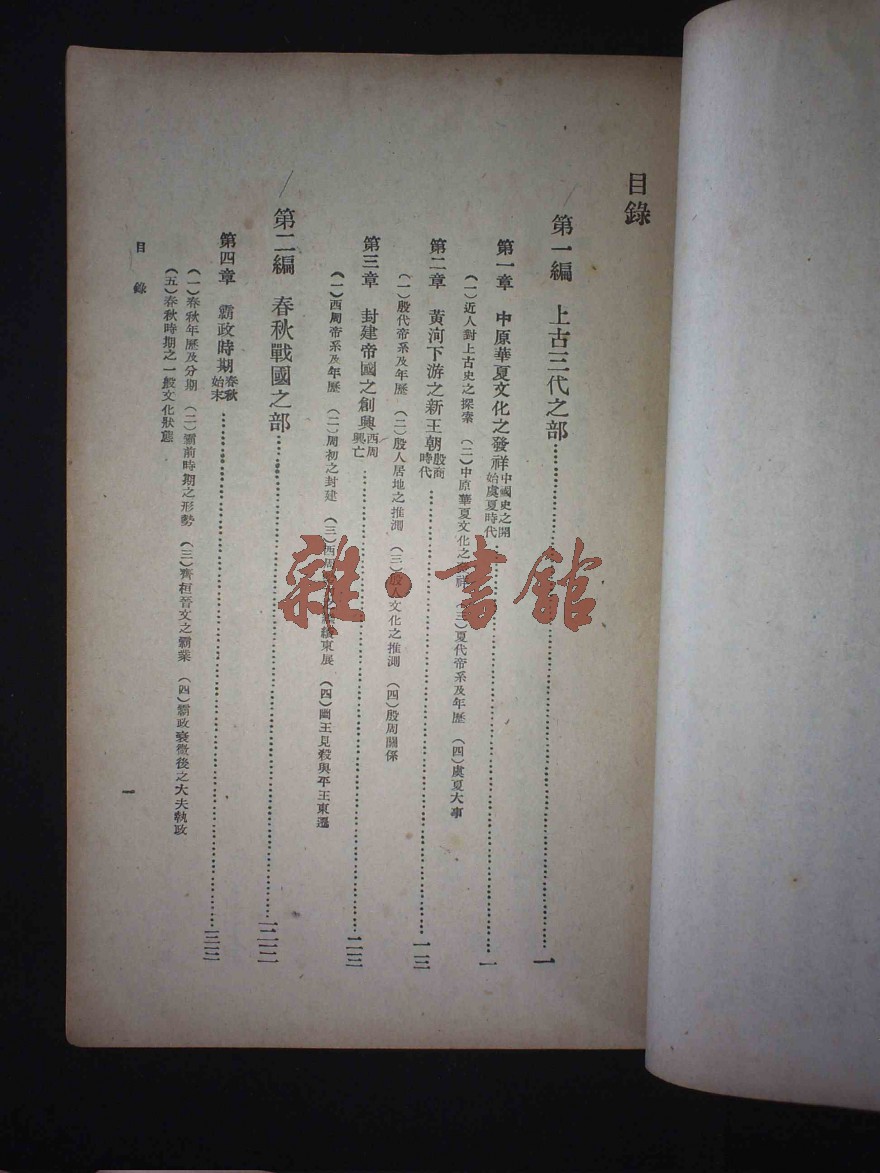 目錄
第一編 上古三代之部……一
第一章 中原華夏文化之發祥中國史之開始虞夏時代……一
(一)近人對上古史之探索 (二)中原華夏文化之發祥 (三)夏代帝系及年歷 (四)虞夏大事
第二章 黃河下游之新王朝殷商時代……一三
(一)殷代帝系及年歷 (二)殷人居地之推測 (三)殷人文化之推測 (四)殷周關係
第三章 封建帝國之創興西周興亡……二三
(一)西周帝系及年歷 (二)周初之封建 (三)西周 東展 (四)幽王見殺與平王東遷
第二編 春秋戰國之部……
第四章 霸政時期春秋始末……
(一)春秋年歷及分期 (二)霸前時期之形勢 (三)齊桓晉文之霸業 (四)霸政衰微後之大夫執政
(五)春秋時期之一般文化狀態
目錄
一
雜·書館